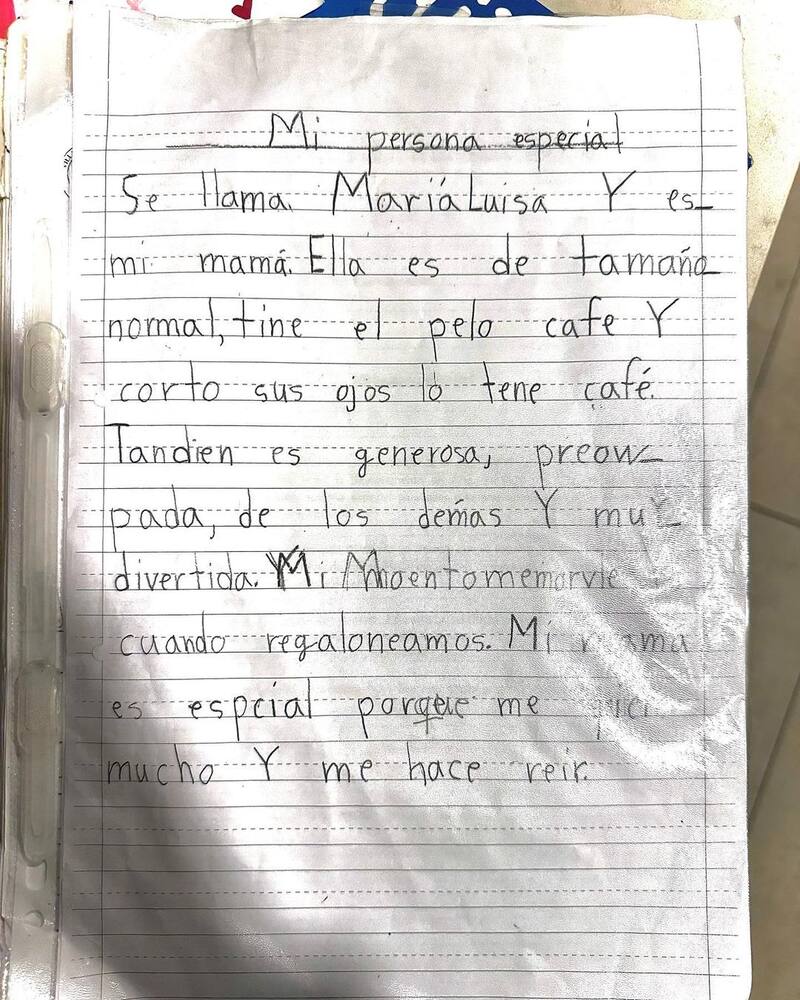 Mi persona especial
Se llama. María Luisa Y es
mi mamá. Ella es de tamaño
normal, tine el pelo cafe Y
corto sus ojos lo tene café.
Tandien es generosa, preocu
pada, de los demás Y muy
divertida. Mi
cuando regaloneamos. Mi mama
es espcial porque me
mucho Y me hace reir.